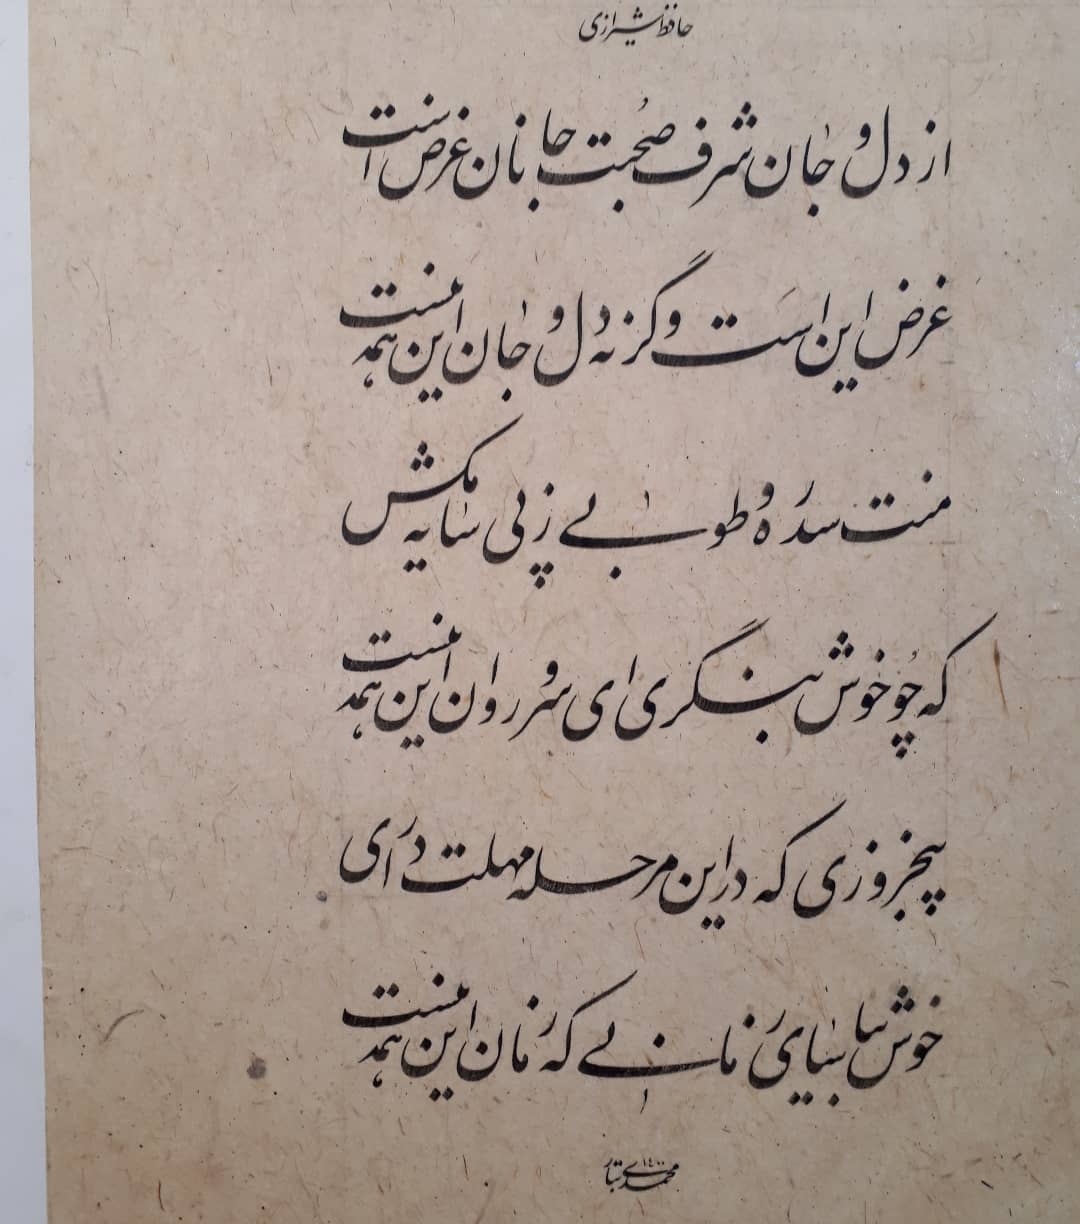 حافظ شیرازی
از دل و جان شرف صُحبت جانان غرض است
غرض این است وگرنه دل و جان این همه نیست
منت سدره و طوبی ز پی سایه مکش
که چو خوش بنگری ای سرو روان این همه نیست
پنجروزی که در این مرحله مهلت داری
خوش بیاسای زمانی که زمان این همه نیست
۱۴۰۰